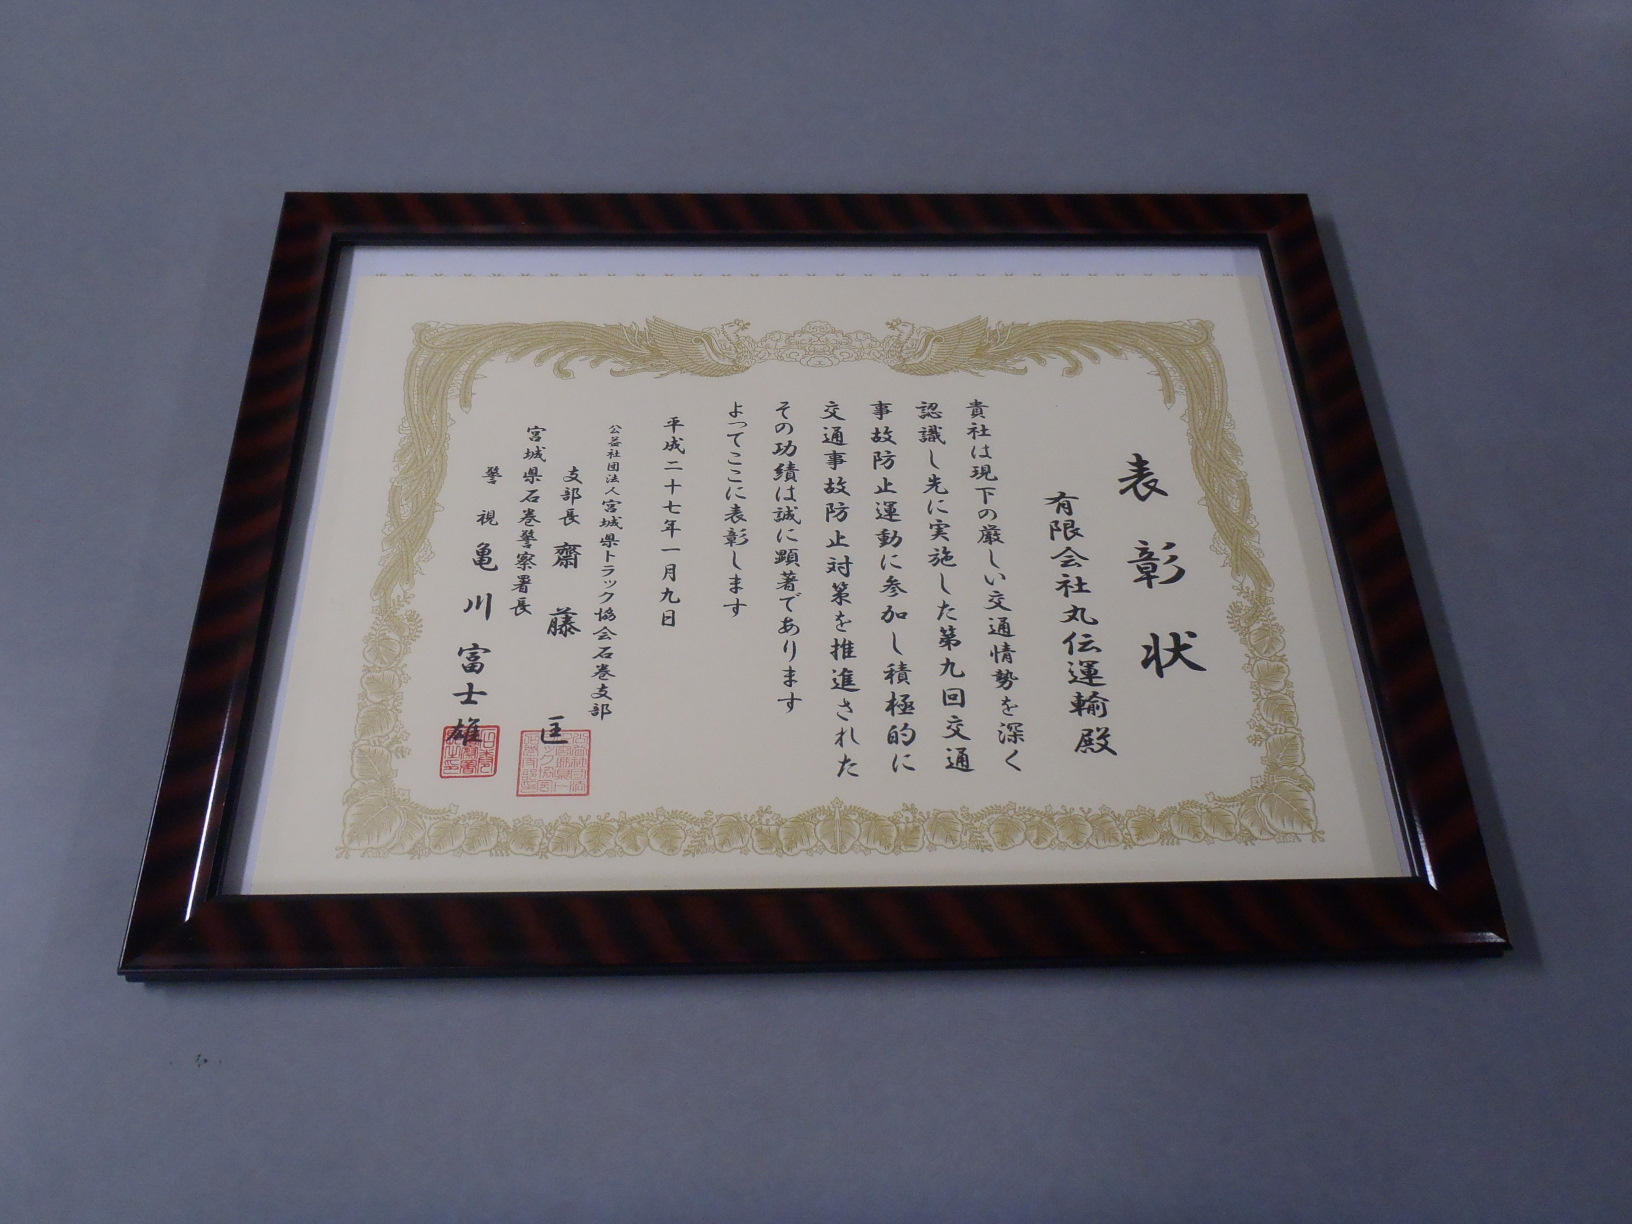 表彰状
有限会社丸伝運輸殿
貴社は現下の厳しい交通情勢を深く
認識し先に実施した第九回交通
事故防止運動に参加し積極的に
交通事故防止対策を推進された
その功績は誠に顕著であります
よってここに表彰します
平成二十七年一月九日
公益社団法人宮城県トラック協会石巻支部
支部長 齋藤 匡
宮城県石巻警察署長
警視 亀川富士雄